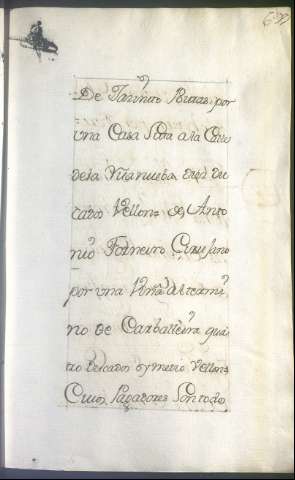 De Jacinto Ribas, por
una Casa Sita a la Calle
de la Vilanueba diez du
cados Vellon; de Anto
nio Forneiro Cirujano
por una Viña al termi
no de Carballeira qua
tro ducados y medio Vellon
Cuios Pagadores Son todo